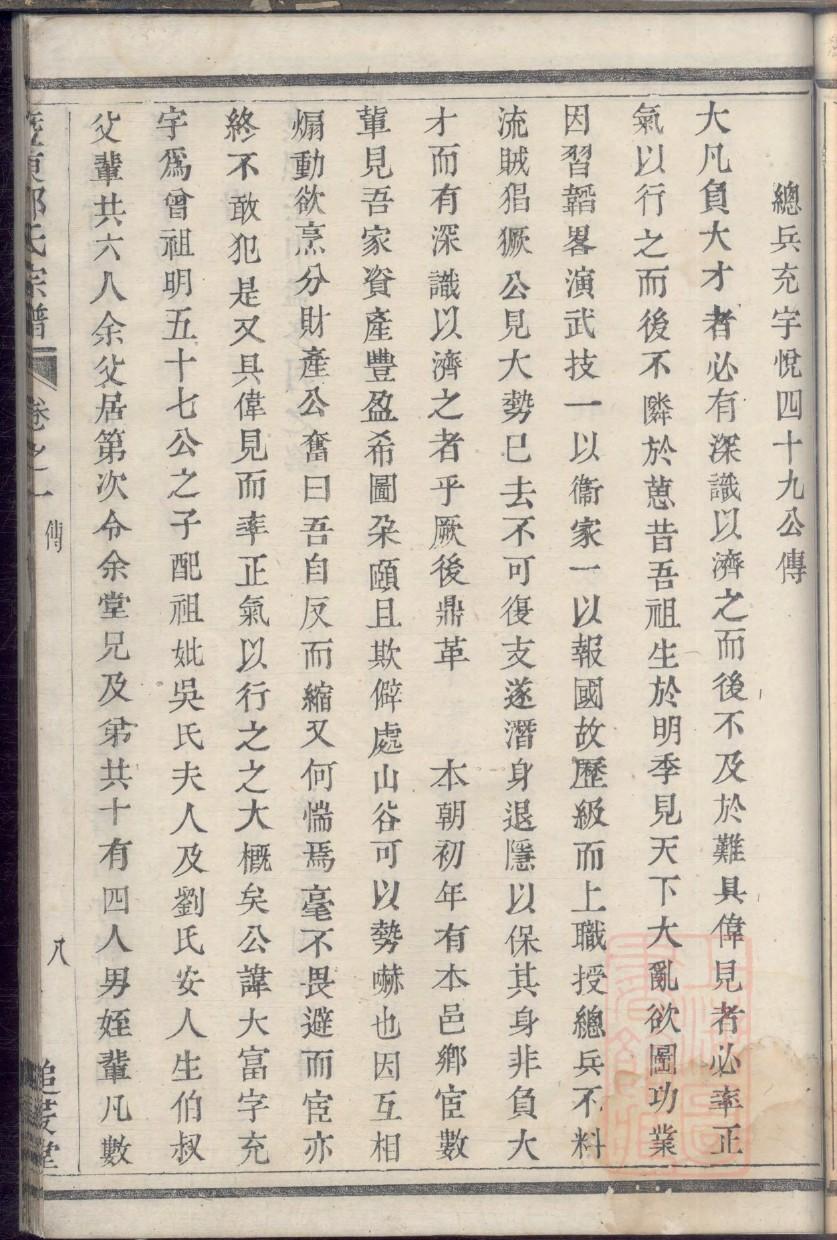 總兵充宇悅四十九公傳
大凡負大才者必有深識以濟之而後不及於難具偉見者必率正
氣以行之而後不隣於葸昔吾祖生於明季見天下大亂欲圖功業
因習韜畧演武技一以衞家一以報國故歷級而上職授總兵不料
流賊猖獗公見大勢已去不可復支遂潛身退隱以保其身非負大
才而有深識以濟之者乎厥後鼎革　本朝初年有本邑鄉宦數
輩見吾家資產豐盈希圖朶頤且欺僻處山谷可以勢嚇也因互相
煽動欲烹分財產公奮曰吾自反而縮又何惴焉毫不畏避而宦亦
終不敢犯是又具偉見而率正氣以行之之大概矣公諱大富字充
宇爲曾祖明五十七公之子配祖妣吳氏夫人及劉氏安人生伯叔
父輩共六人余父居第次令余堂兄及弟共十有四人男姪輩凡數
氏宗譜　卷之一　傳　八　追　堂